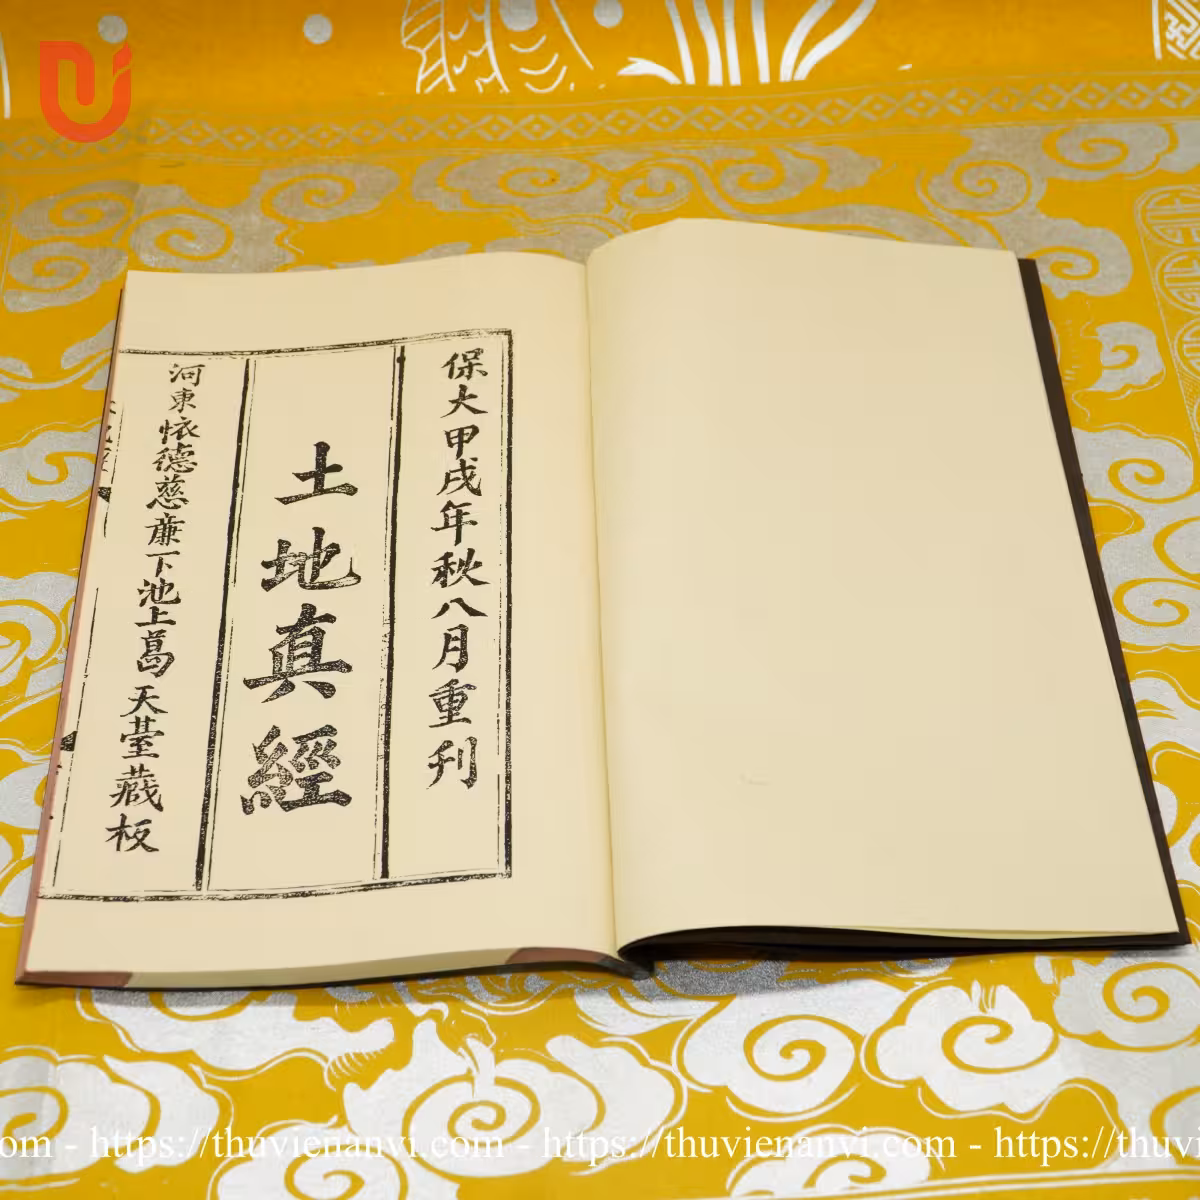 保大甲戌年秋八月重刊
土地真經
河東懷德慈廉下池上葛天臺藏板
https://thuvienanvi.com - https://thuvienanvi.com - https://thuvi